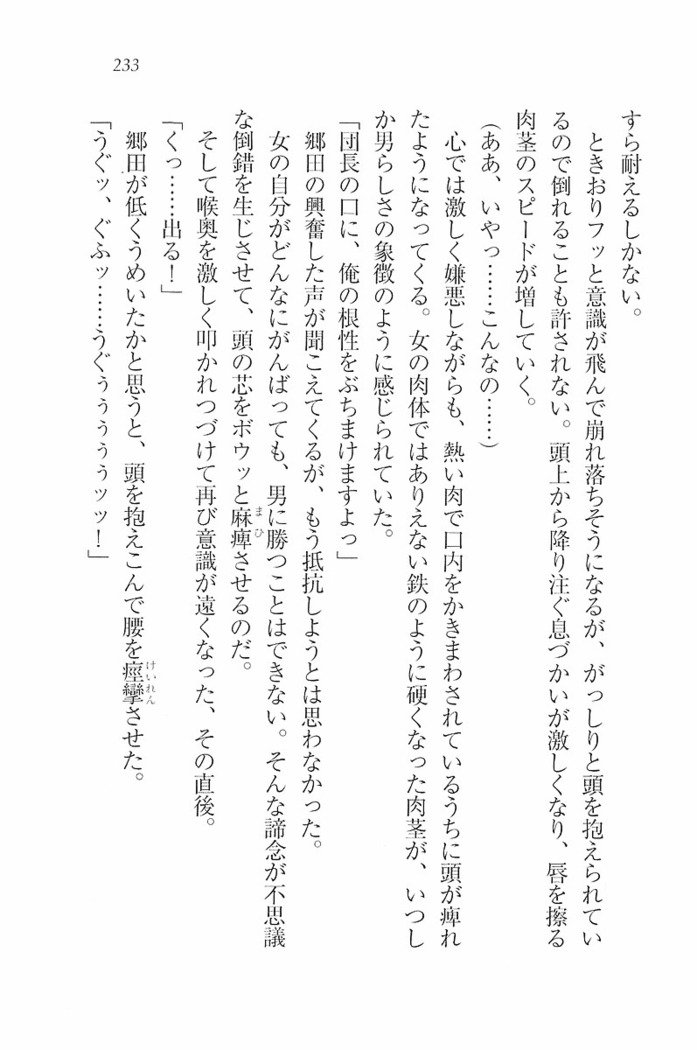 233
すら耐えるしかない。
ときおりフッと意識が飛んで崩れ落ちそうになるが、がっしりと頭を抱えられてい
るので倒れることも許されない。頭上から降り注ぐ息づかいが激しくなり、唇を擦る
肉茎のスピードが増していく。
(ああ、いやっ……こんなの……)
心では激しく嫌悪しながらも、熱い肉で口内をかきまわされているうちに頭が痺れ
たようになってくる。女の肉体ではありえない鉄のように硬くなった肉茎が、いつし
か男らしさの象徴のように感じられていた。
「団長の口に、俺の根性をぶちまけますよっ」
郷田の興奮した声が聞こえてくるが、もう抵抗しようとは思わなかった。
女の自分がどんなにがんばっても、男に勝つことはできない。そんな諦念が不思議
な倒錯を生じさせて、頭の芯をボウッと麻痺させるのだ。
まひ
そして喉奥を激しく叩かれつづけて再び意識が遠くなった、その直後。
「くっ……出る！」
郷田が低くうめいたかと思うと、頭を抱えこんで腰を痙攣させた。
けいれん
「うぐッ、ぐふッ……うぐぅぅぅぅッッ！」